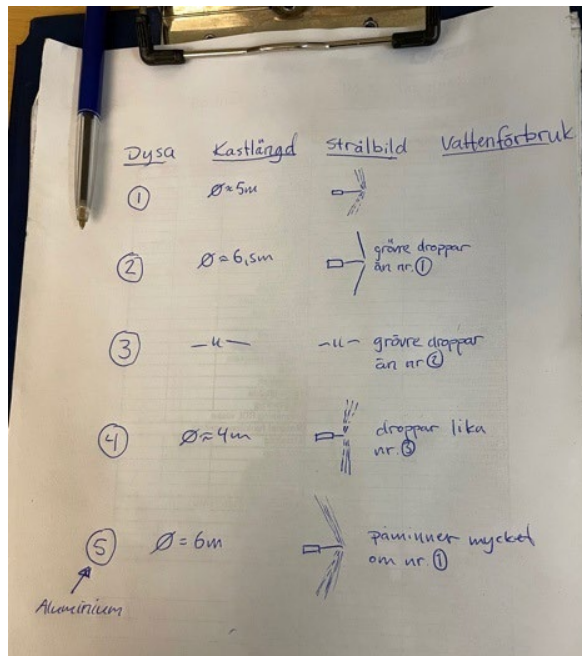 Dysa Kastlängd Strålbild Vattenförbruk
① Ø≈5m
② Ø=6,5m grövre droppar
än nr.①
③ —u— —u— grövre droppar
än nr②
④ Ø≈4m droppar lika
nr.③
⑤ Ø=6m påminner mycket
om nr.①
Aluminium